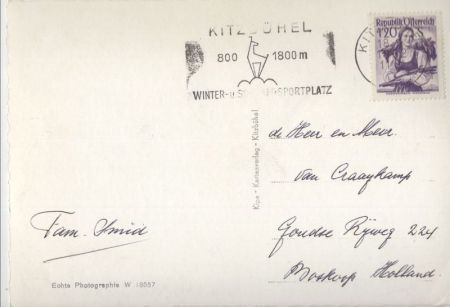 KITZBÜHEL
800 1800 m
WINTER- u. SPORTPLATZ
Republik Österreich
1.20
de Heer en Mevr.
van Craaykamp
Goudse Rijweg 224
Boskoop Holland.
Fam. Smid
Kipa - Kartenverlag - Kitzbühel
Echte Photographie W 18057